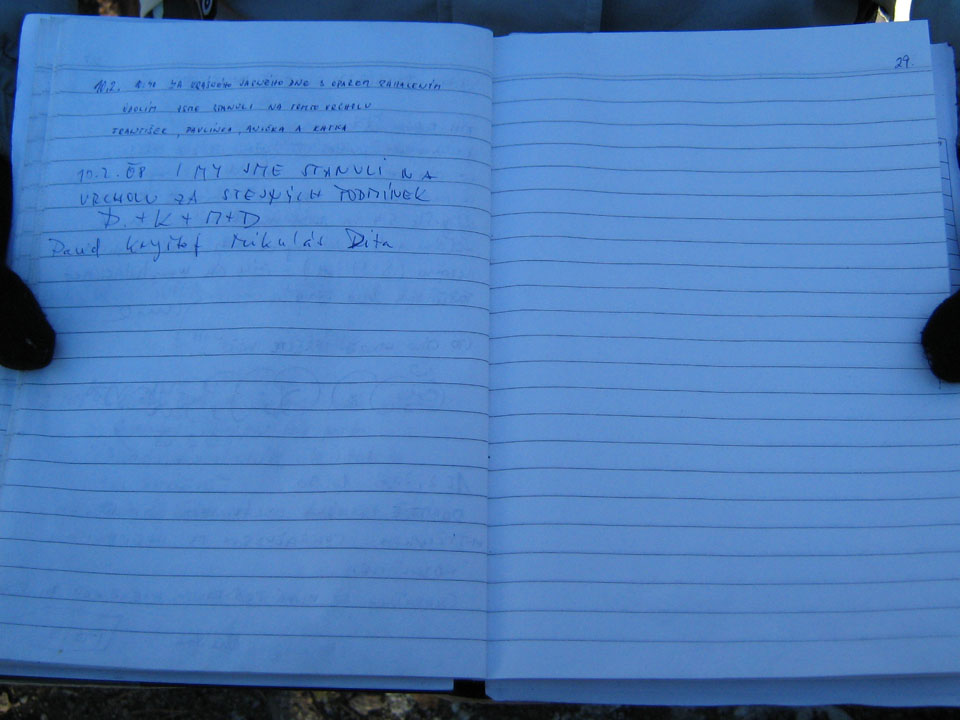 10.2. ZA KRÁSNÉHO JASNÉHO DNE S OPAREM ZAHALENÝM
ÚDOLÍM JSME STANULI NA TOMTO VRCHOLU
FRANTIŠEK, PAVLÍNKA, ANIČKA A KATKA
10.2.08 I MY JSME STANULI NA
VRCHOLU ZA STEJNÝCH PODMÍNEK
D. + K + M + D
David Kryštof Mikuláš Dita
29.